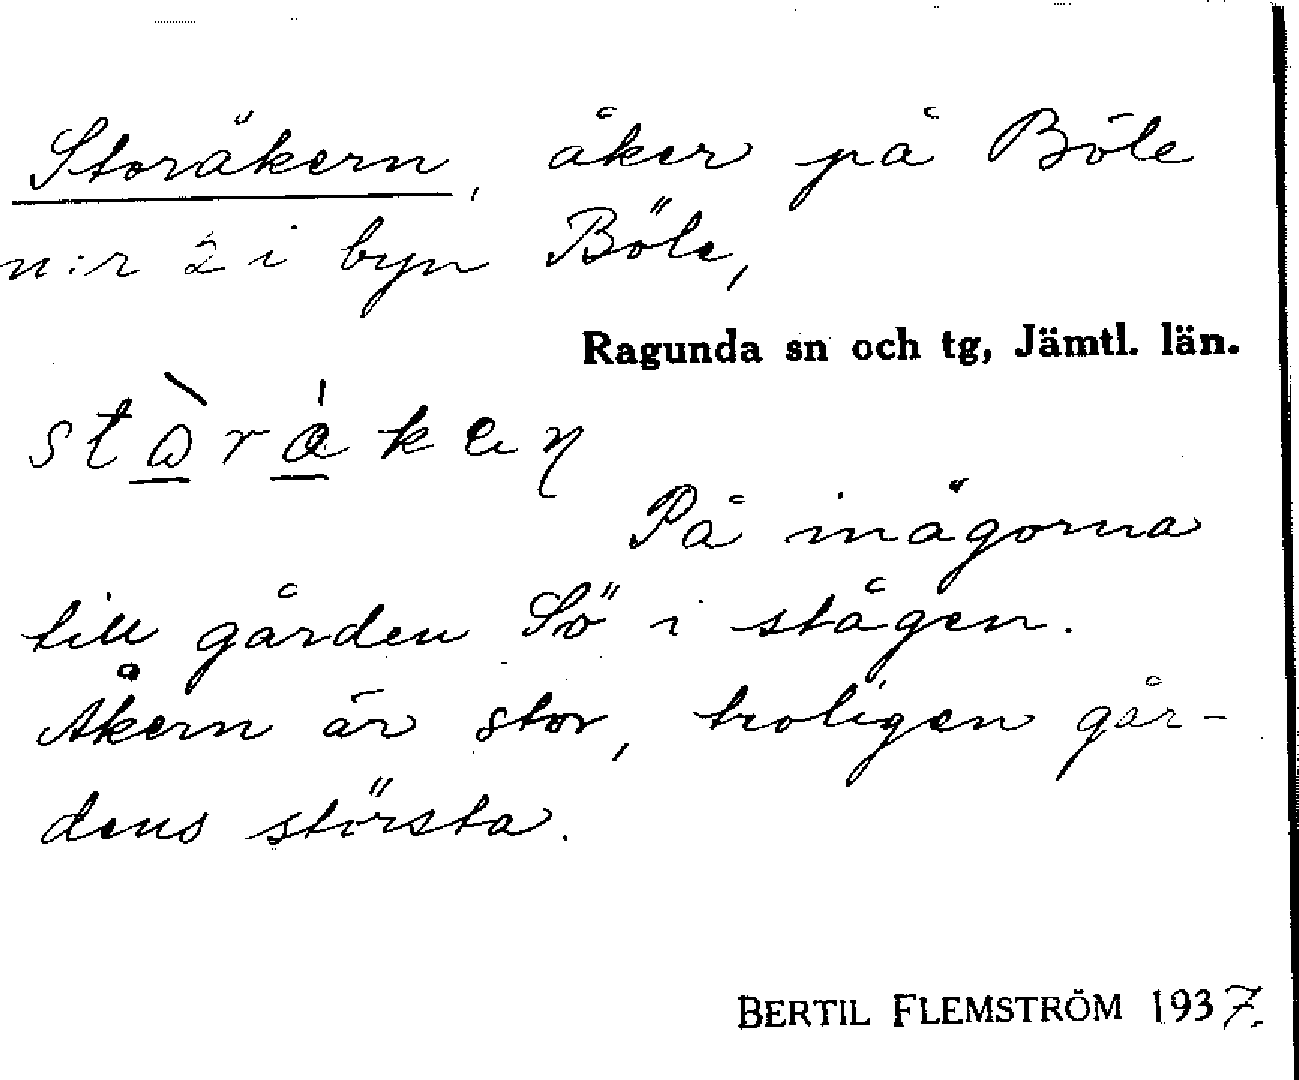 Storåkern, åker på Böle
n:r 2 i byn Böle,
Ragunda sn och tg, Jämtl. län.
stòråkeɳ
På inägorna
till gården Sö i stågen.
Åkern är stor, troligen går-
dens största.
BERTIL FLEMSTRÖM 1937.